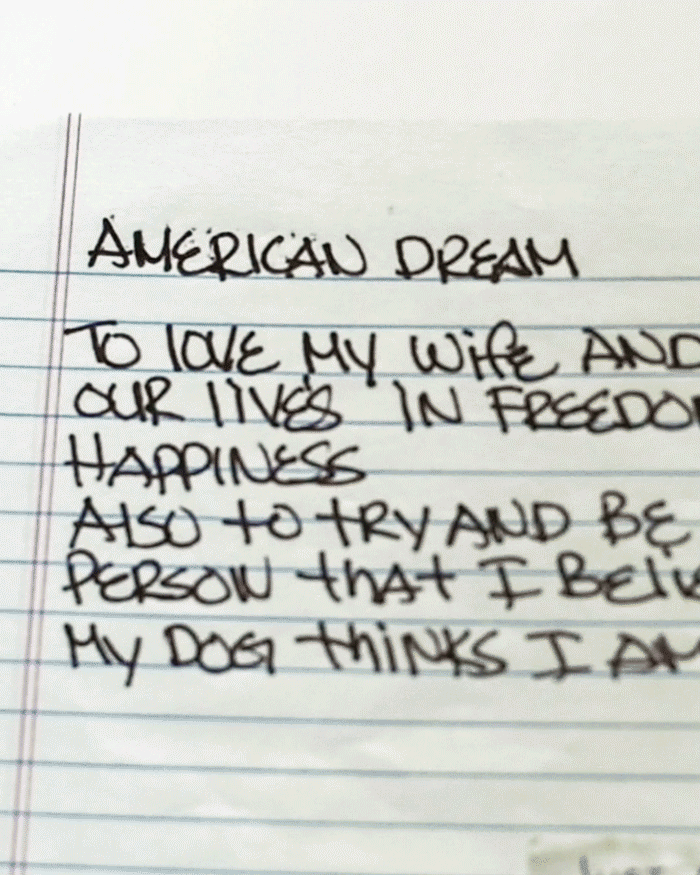 AMERICAN DREAM
TO lOVE MY WifE AND
OUR lIVES IN FREEDO
HAPPINESS
AlSO to tRY AND BE
PERSON thAt I BEli
MY DOG thiNKS I AM